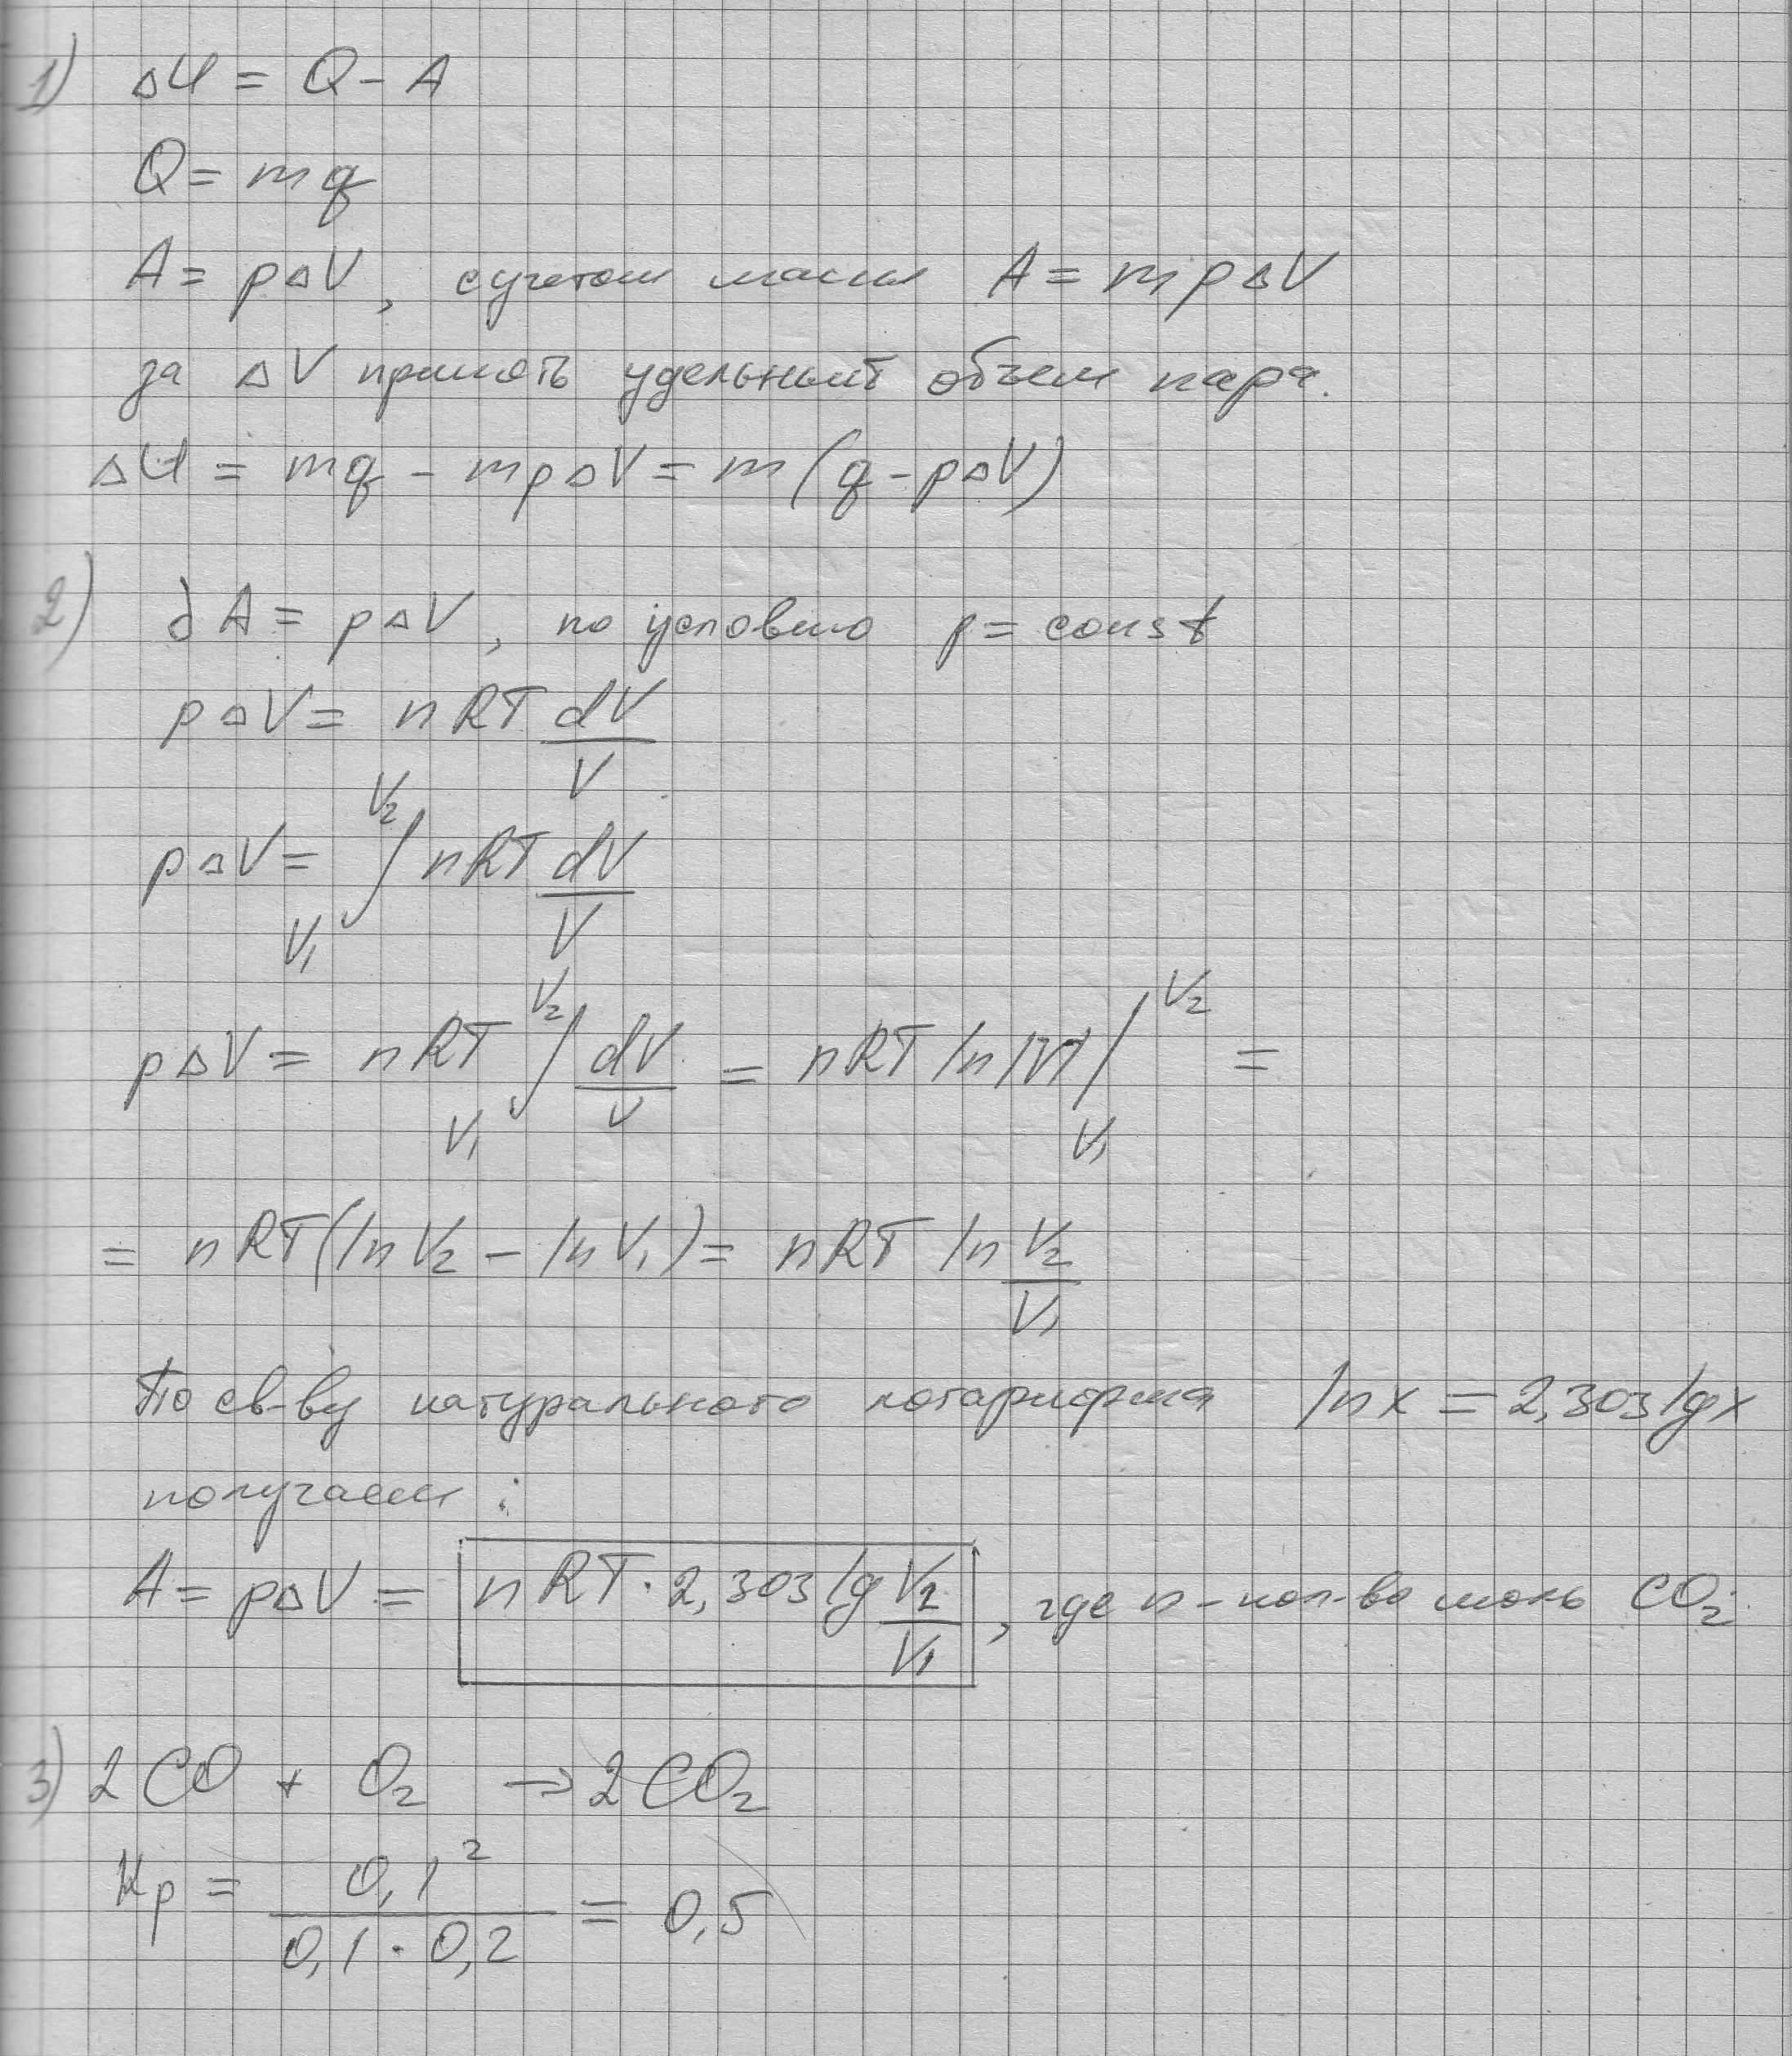 1) ΔU = Q - A
Q = mq
A = pΔV, с учетом массы A = mpΔV
за ΔV принять удельный объем пара.
ΔU = mq - mpΔV = m(q - pΔV)
2) ∂A = pΔV, по условию p = const
pΔV = nRT dV/V
pΔV = ∫_{V₁}^{V₂} nRT dV/V
pΔV = nRT ∫_{V₁}^{V₂} dV/V = nRT ln|V| |_{V₁}^{V₂} =
= nRT(ln V₂ - ln V₁) = nRT ln V₂/V₁
По св-ву натурального логарифма ln x = 2,303 lg x
получаем :
A = pΔV = nRT · 2,303 lg V₂/V₁, где n - кол-во моль CO₂
3) 2CO + O₂ → 2CO₂
Kp = 0,1²/(0,1 · 0,2) = 0,5